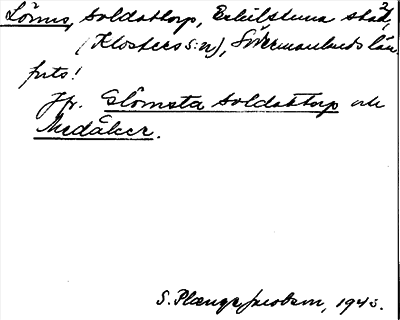 Lönns, soldattorp, Eskilstuna stad,
(Klosters s:n), Södermanlands län.
fnts!
Jfr. Glömsta soldattorp och
Medåker.
S. Plænge Jacobson, 1945.